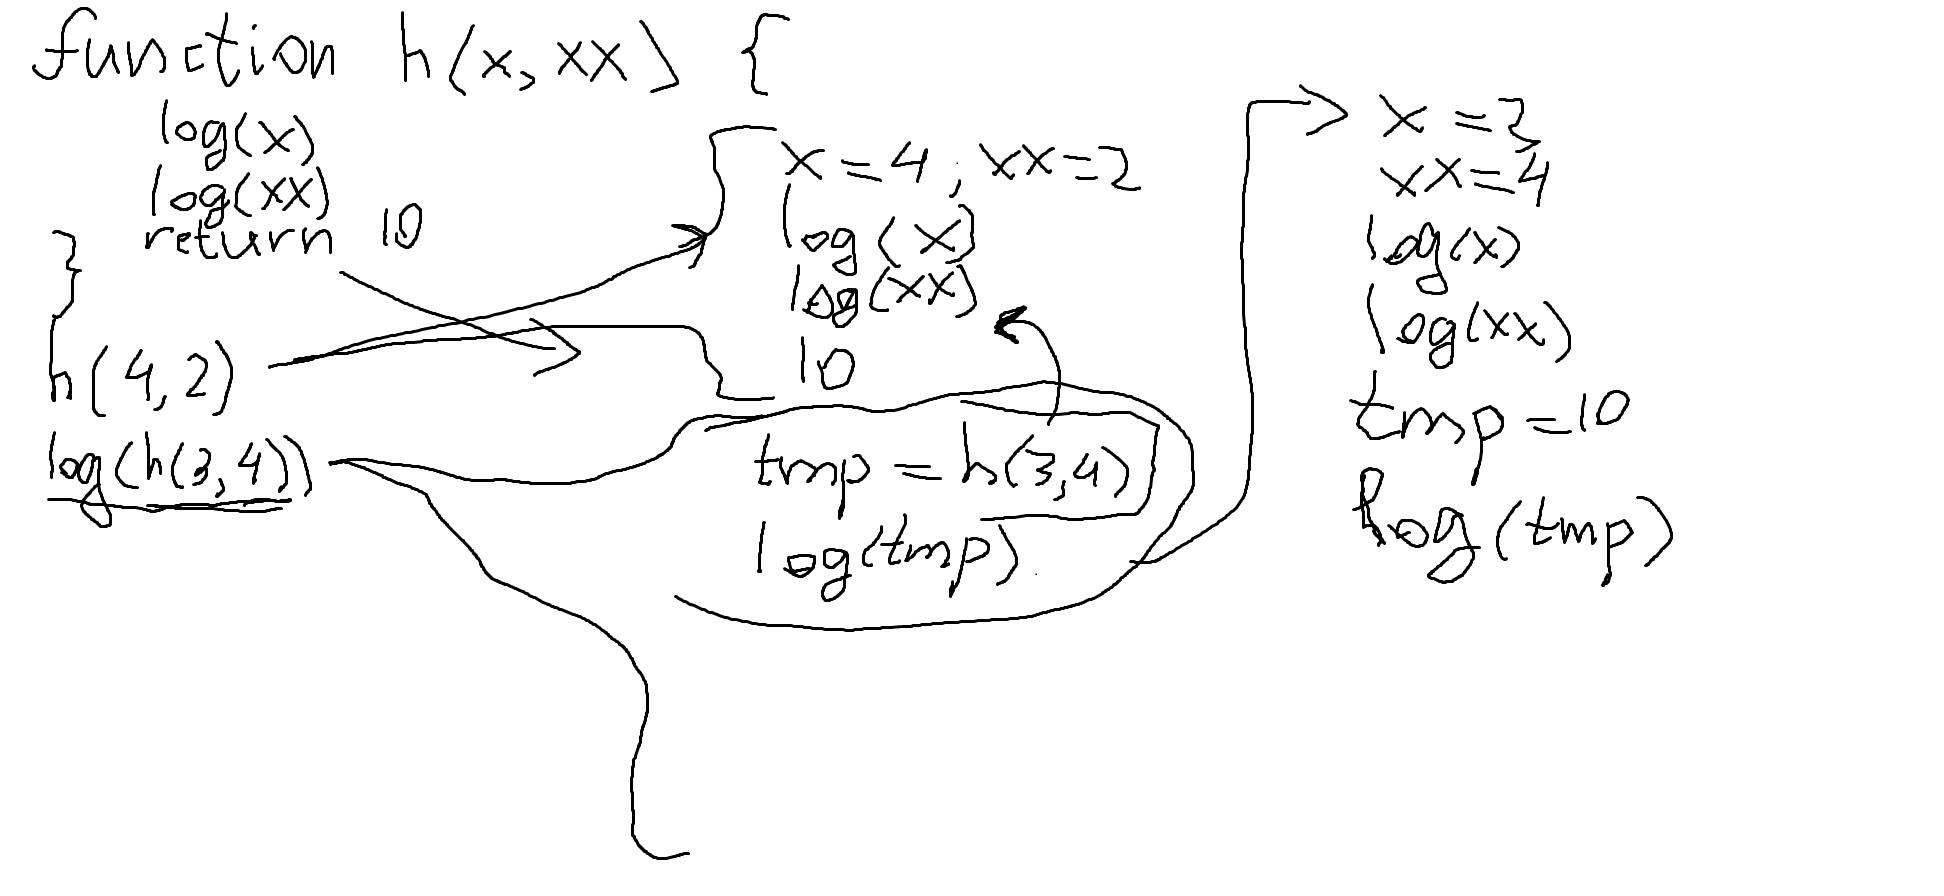 function h(x, xx) {
log(x)
log(xx)
return 10
}
h(4,2)
log(h(3,4))
x = 4, xx = 2
log(x)
log(xx)
10
tmp = h(3,4)
log(tmp)
x = 3
xx = 4
log(x)
log(xx)
tmp = 10
log(tmp)